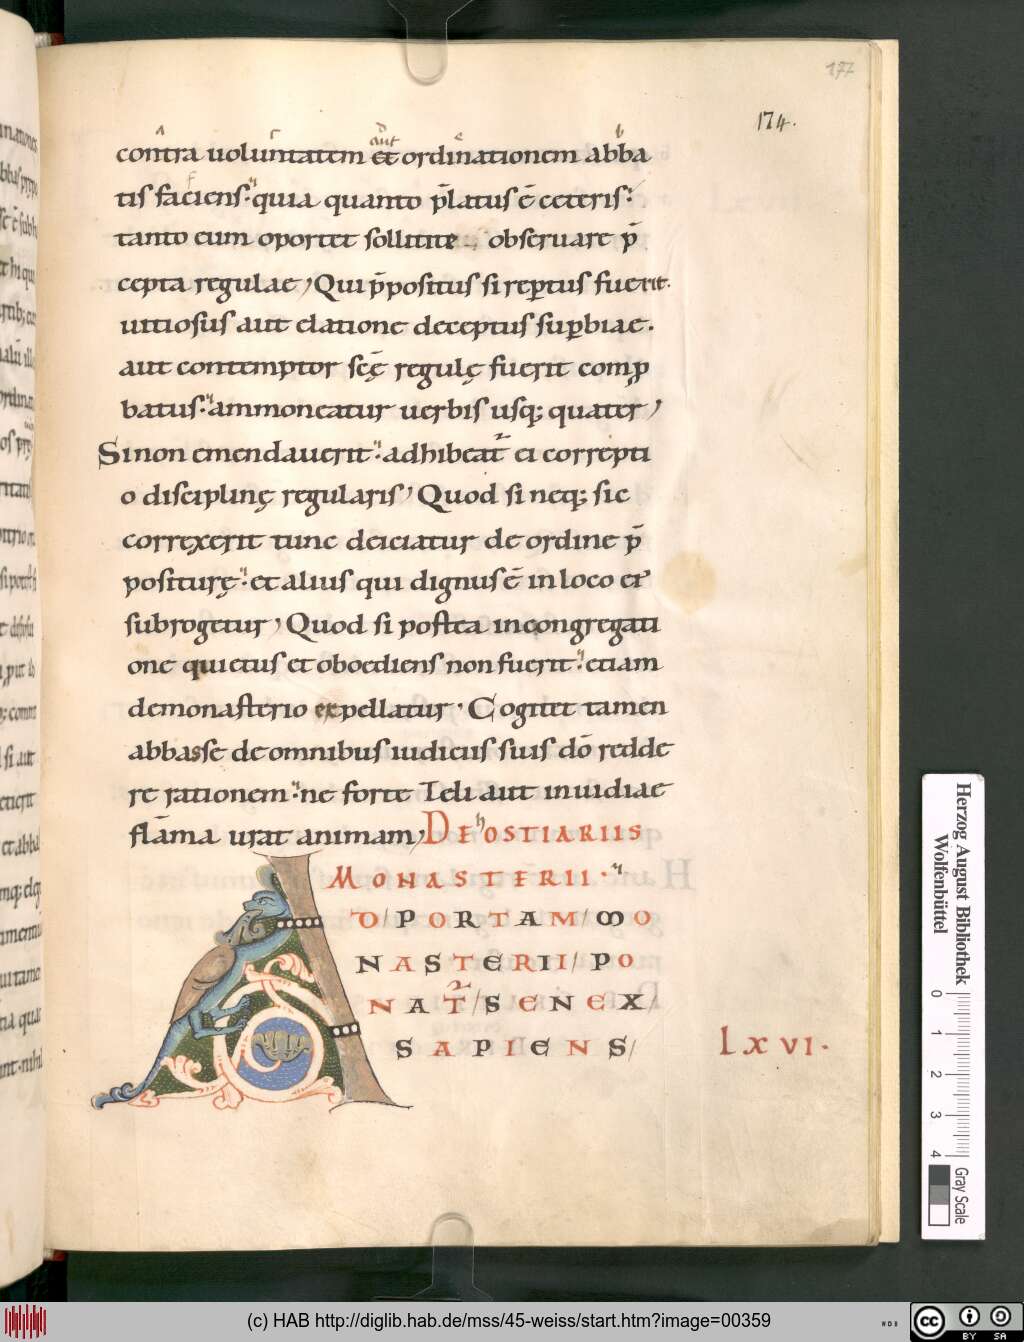 177
174.
contra uoluntatem et aut ordinationem abba
tis faciens. quia quanto p̄latus ē ceteris.
tanto eum oportet sollicite obseruare p̄
cepta regulae, Qui p̄positus si rep̱tus fuerit.
uitiosus aut elatione deceptus sup̱biae.
aut contemptor scę̄ regulę fuerit comp̱
batus. ammoneatur uerbis usq; quater,
Si non emendauerit. adhibeat̾ ei correpti
o disciplinę regularis, Quod si neq; sic
correxerit tunc deiciatur de ordine p̄
positurę. et alius qui dignus ē in loco ei'
subrogetur, Quod si postea in congregati
one quietus et oboediens non fuerit. etiam
de monasterio expellatur, Cogitet tamen
abbas se de omnibus iudiciis suis dō redde
re rationem. ne forte zeli aut inuidiae
flāma urat animam, DE hOSTIARIIS
MONASTERII.
AD / PORTAM / MO
NASTERII / PO
NAT̾ / SENEX /
SAPIENS /
LXVI.
Herzog August Bibliothek
Wolfenbüttel
0 1 2 3 4
Gray Scale
(c) HAB http://diglib.hab.de/mss/45-weiss/start.htm?image=00359
WDB
cc BY SA